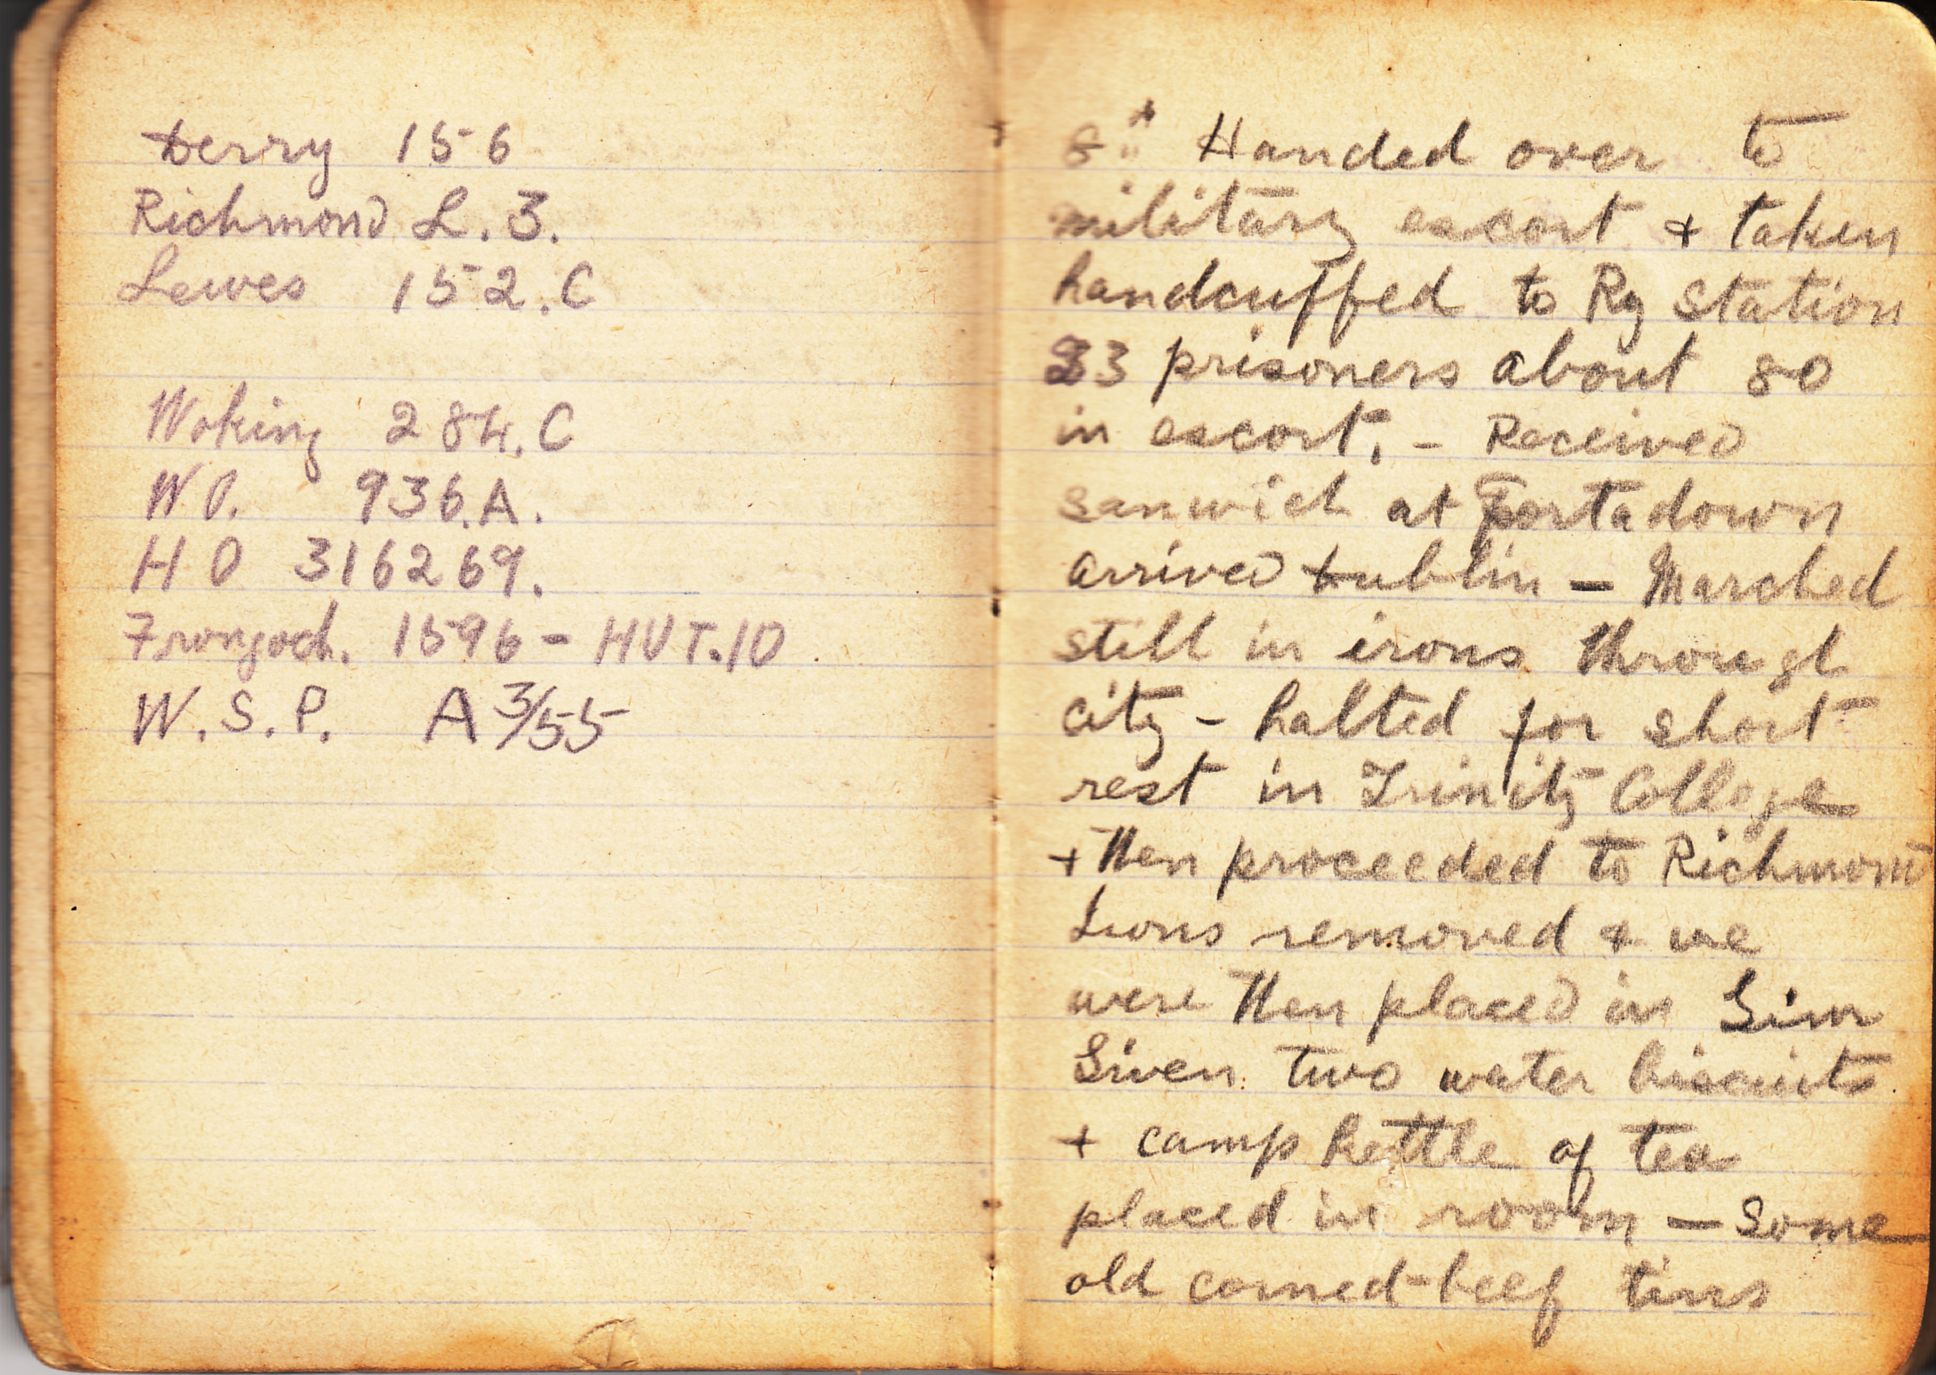 Derry 156
Richmond L. 3.
Lewes 152. C
Woking 284. C
W O. 936. A.
H O 316269.
Frongoch. 1596 - HUT. 10
W. S. P. A 3/55
8th Handed over to
military escort + taken
handcuffed to Ry Station
23 prisoners about 80
in escort. - Received
sanwich at Portadown
arrived Dublin - Marched
still in irons through
city - halted for short
rest in Trinity College
+ then proceeded to Richmond
Irons removed + we
were then placed in Gim
Given two water biscuits
+ camp kettle of tea
placed in room - Some
old corned-beef tins